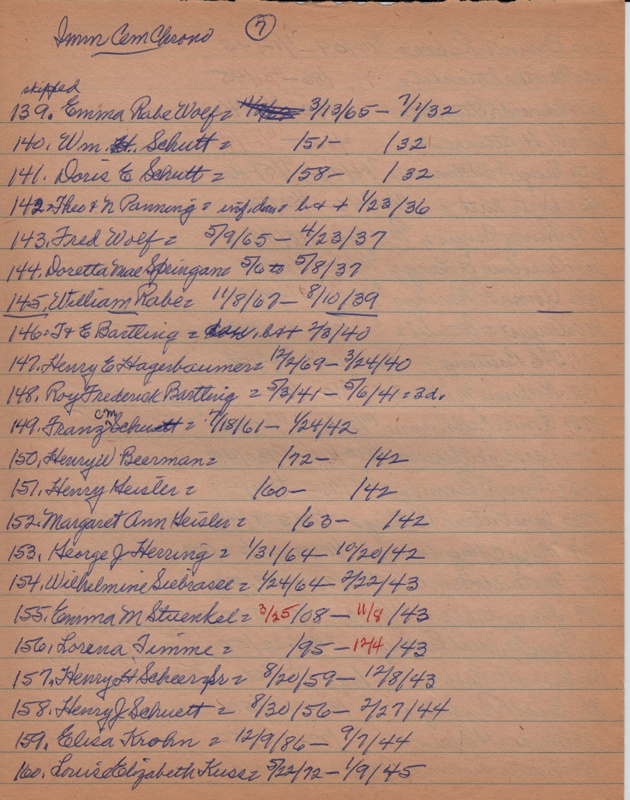 Imm Cem Chrono 7
skipped
139. Emma Rabe Wolf = 3/13/65 - 7/1/32
140. Wm. H. Schutt = /51- /32
141. Doris E Schutt = /58- /32
142. Theo + N Panning = inf. dau = b + + 1/23/36
143. Fred Wolf = 5/9/65 - 4/23/37
144. Doretta Mae Springan = 5/6 to 5/8/37
145. William Rabe = 11/8/67 - 8/10/39
146. T + E Bartling = b + + 2/3/40
147. Henry E Hagerbaumer = 12/2/69 - 3/24/40
148. Roy Frederick Bartling = 5/3/41 - 5/6/41 = 3d.
149. Franz 7/18/61 - 1/24/42
150. Henry W Beerman = /72- /42
151. Henry Geisler = /60- /42
152. Margaret Ann Geisler = /63- /42
153. George J Herring = 1/31/64 - 10/20/42
154. Wilhelmine Siebrasse = 1/24/64 - 2/22/43
155. Emma M Stuenkel = 3/25/08 - 11/8/43
156. Lorena Timme = /95 - 12/4/43
157. Henry H Scheer Sr = 8/20/59 - 12/8/43
158. Henry J Schuett = 8/30/56 - 2/27/44
159. Elisa Krohn = 12/9/86 - 9/7/44
160. Louise Elizabeth Kuss = 5/22/72 - 1/9/45